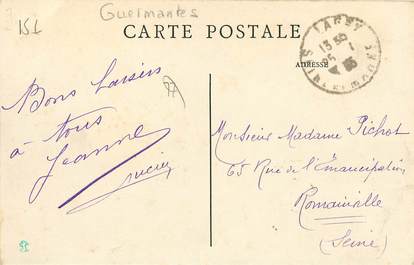 Guermantes
151
CARTE POSTALE
ADRESSE
LAGNY
13 35
25 - 1
SEINE-ET-MARNE
Bons baisers
à tous
Jeanne
Lucien
Monsieur Madame Pichot
65 Rue de l'Émancipation
Romainville
(Seine)